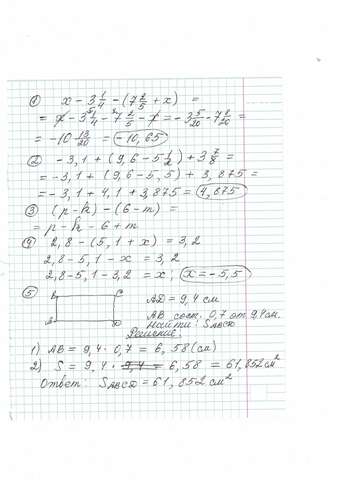 ① x - 3 1/4 - (7 2/5 + x) =
= x - 3 ⁵ 1/4 - 7 2/5 - x = - 3 5/20 - 7 8/20 =
= - 10 13/20 = - 10,65
② - 3,1 + (9,6 - 5 1/2) + 3 7/8 =
= - 3,1 + (9,6 - 5,5) + 3,875 =
= - 3,1 + 4,1 + 3,875 = 4,875
③ (p - k) - (6 - m) =
= p - k - 6 + m
④ 2,8 - (5,1 + x) = 3,2
2,8 - 5,1 - x = 3,2
2,8 - 5,1 - 3,2 = x; x = - 5,5
⑤ B C
A D
AD = 9,4 см
AB сост. 0,7 от 9,4 см.
Найти: S ABCD
Решение:
1) AB = 9,4 · 0,7 = 6,58 (см)
2) S = 9,4 · 9,4 = 6,58 = 61,852 см²
Ответ: S ABCD = 61,852 см²